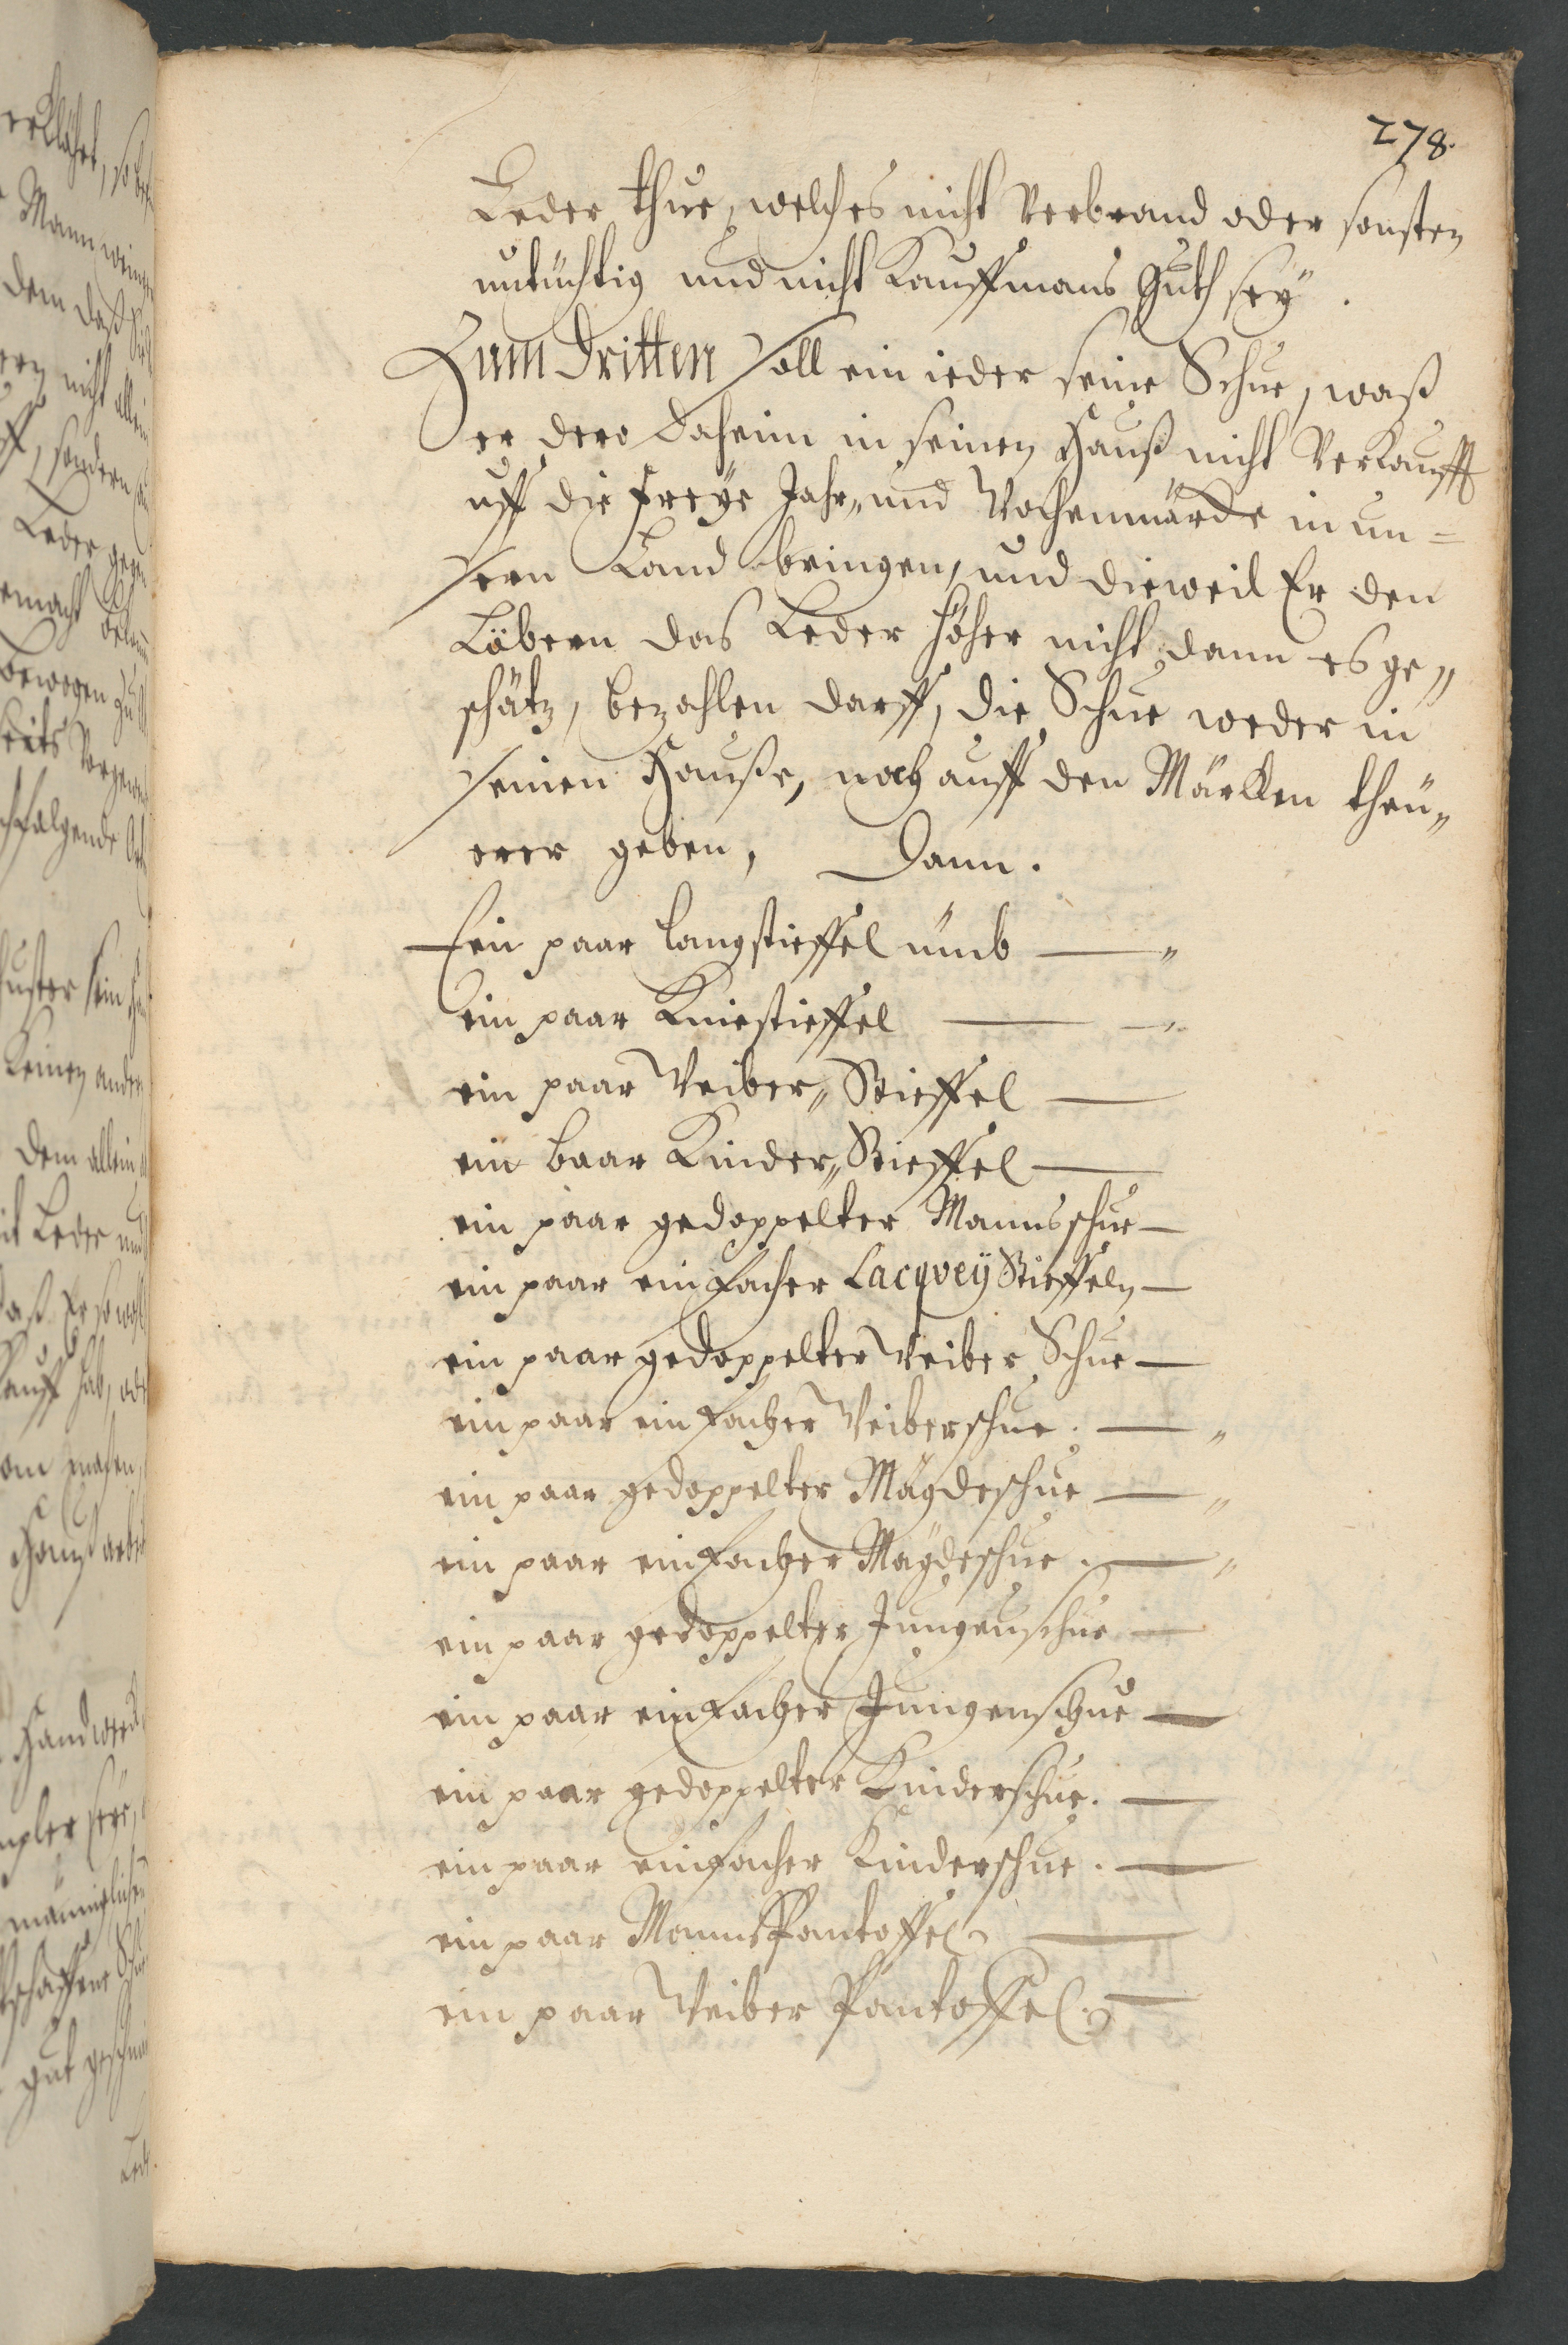 278.
Leder thue, welches nicht Verbrand oder sonsten
untüchtig und nicht Kauffmans Guth seÿ.
Zum Dritten soll ein ieder seine Schue, waß
er dero daheim in seinen Hauß nicht Verkaufft
uff die freÿe Jahr„ und Wochenmärckte in un=
sern Land bringen, und dieweil Er den
Löbern das Leder höher nicht, dann es ge„
schätz, bezahlen darff, die Schue weder in
seinen Hauße, noch auff den Märkten theü„
erer geben, Dann.
Ein paar langstieffel ümb — „
ein paar Kniestieffel — „
ein paar Weiber„ Stieffel —
ein baar Kinder„ Stieffel —
ein paar gedoppelter Mannsschue —
ein paar einfacher Lacqveÿ Stieffeln —
ein paar gedoppelter Weiber Schue —
ein paar einfacher Weiberschue. — „
ein paar gedoppelter Mägdeschue — „
ein paar einfacher Mägdeschue. — „
ein paar gedoppelter Jungenschue —
ein paar einfacher Jungenschue —
ein paar gedoppelter Kinderschue. —
ein paar einfacher Kinderschue. —
ein paar MannsPantoffel —
ein paar Weiber Pantoffel. —